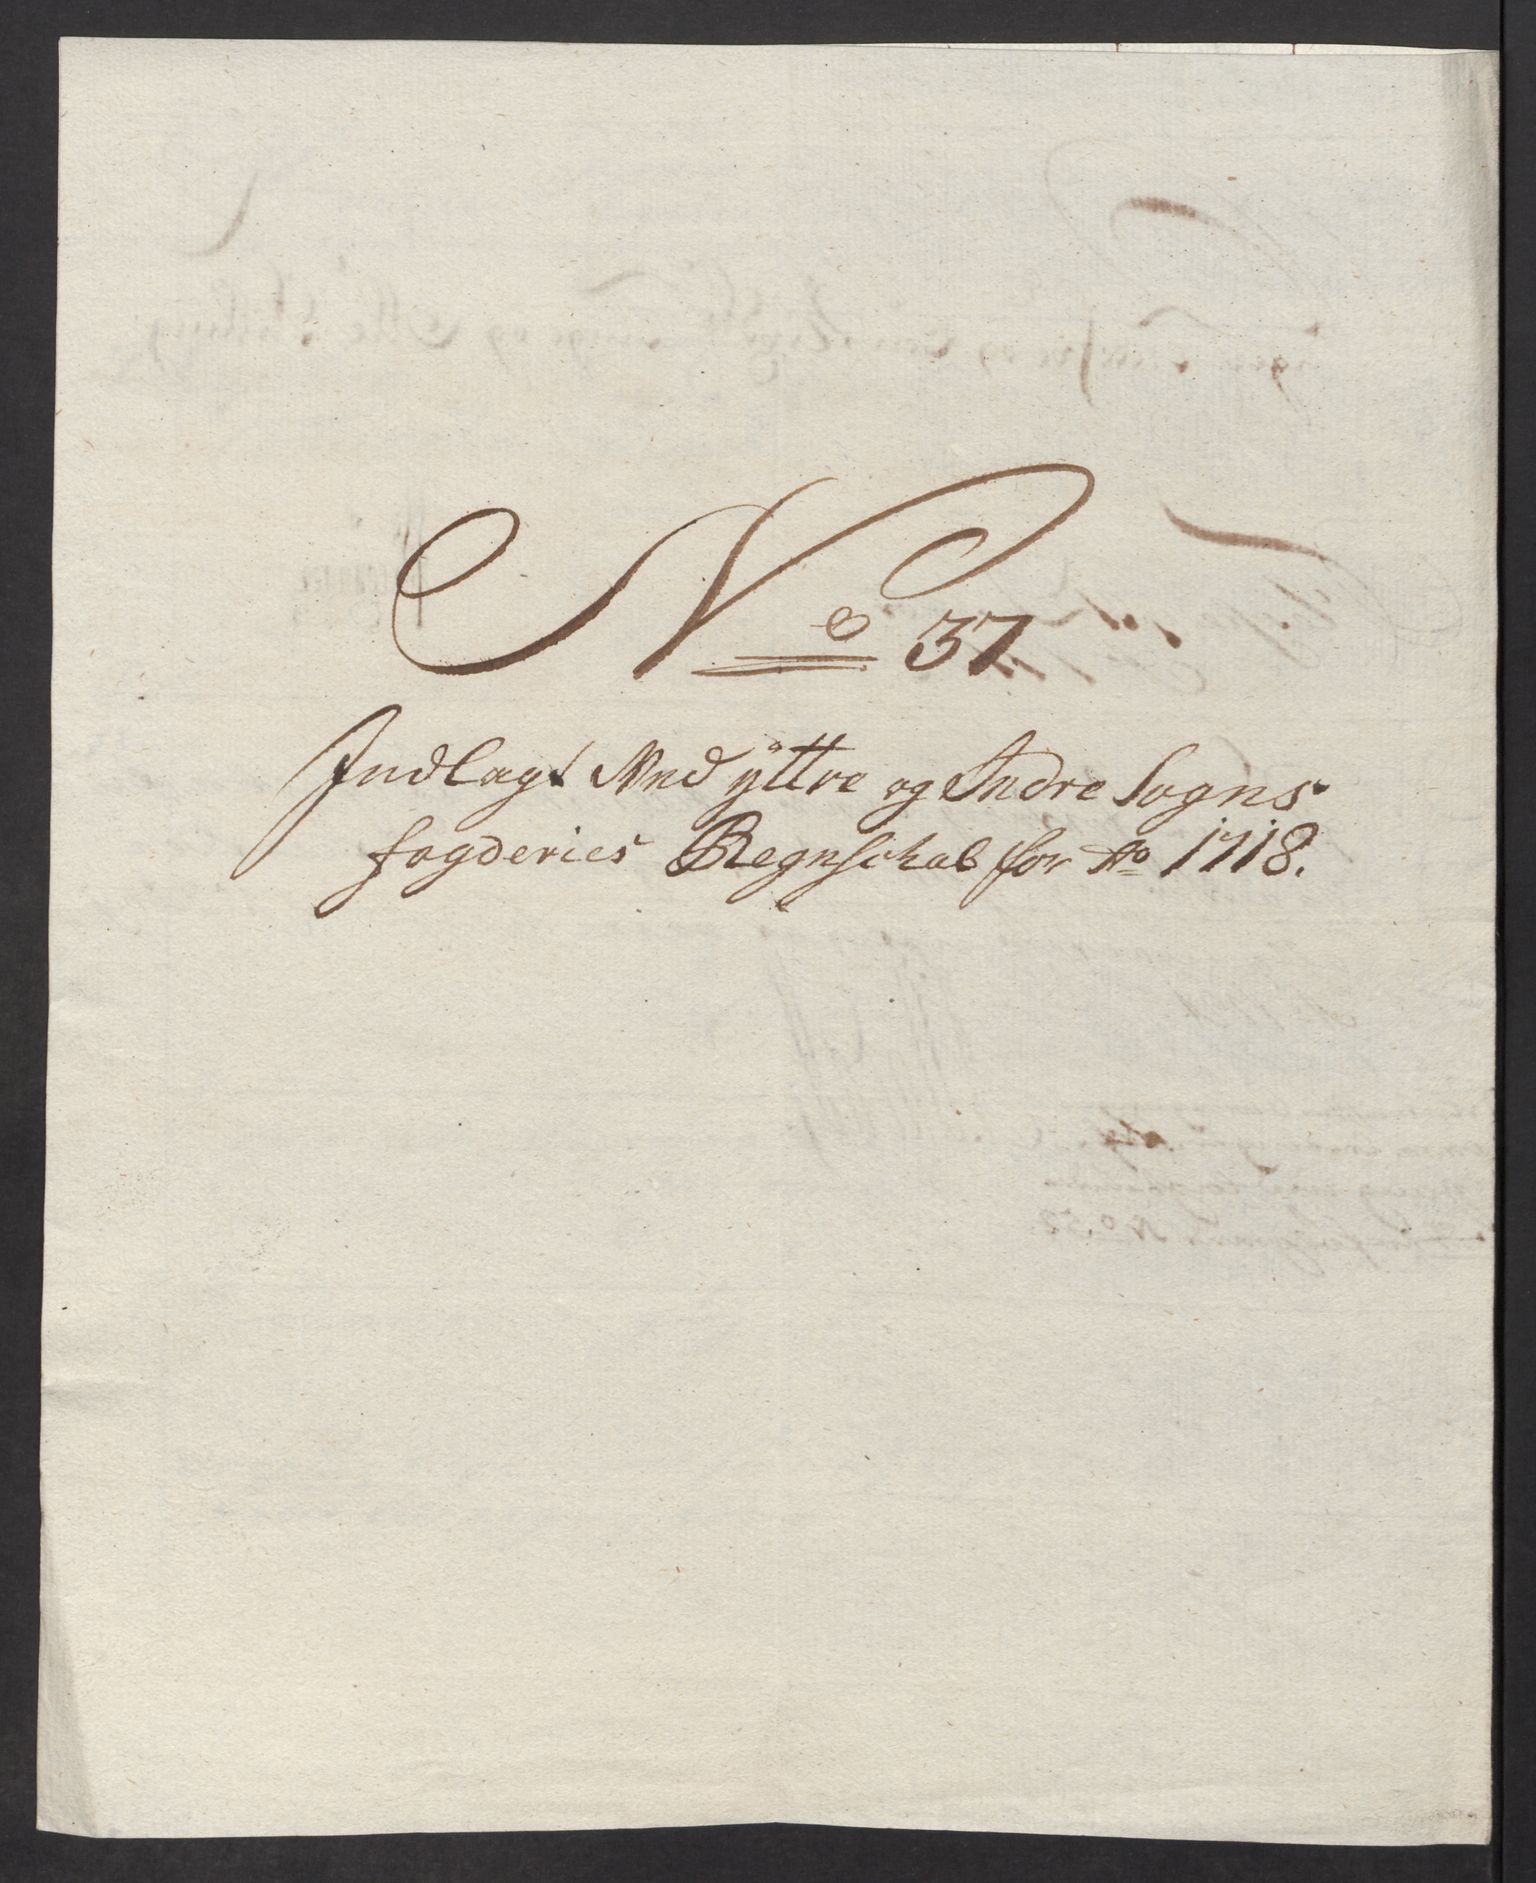 No 37
Indlagt Med ÿttre og Indre Sogns
fogderies Regnschab for Ao 1718.